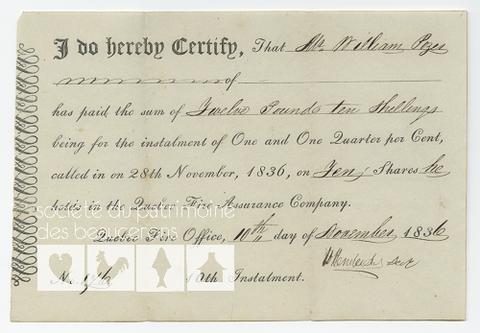 I do hereby Certify, That Mr William Pozer
of
has paid the sum of Twelve Pounds ten Shellings
being for the instalment of One and One Quarter per Cent,
called in on 28th November, 1836, on Ten Shares he
holds in the Quebec Fire Assurance Company.
société du patrimoine
des beaucerons
Quebec Fire Office, 10th day of November 1836
No. 10th Instalment.